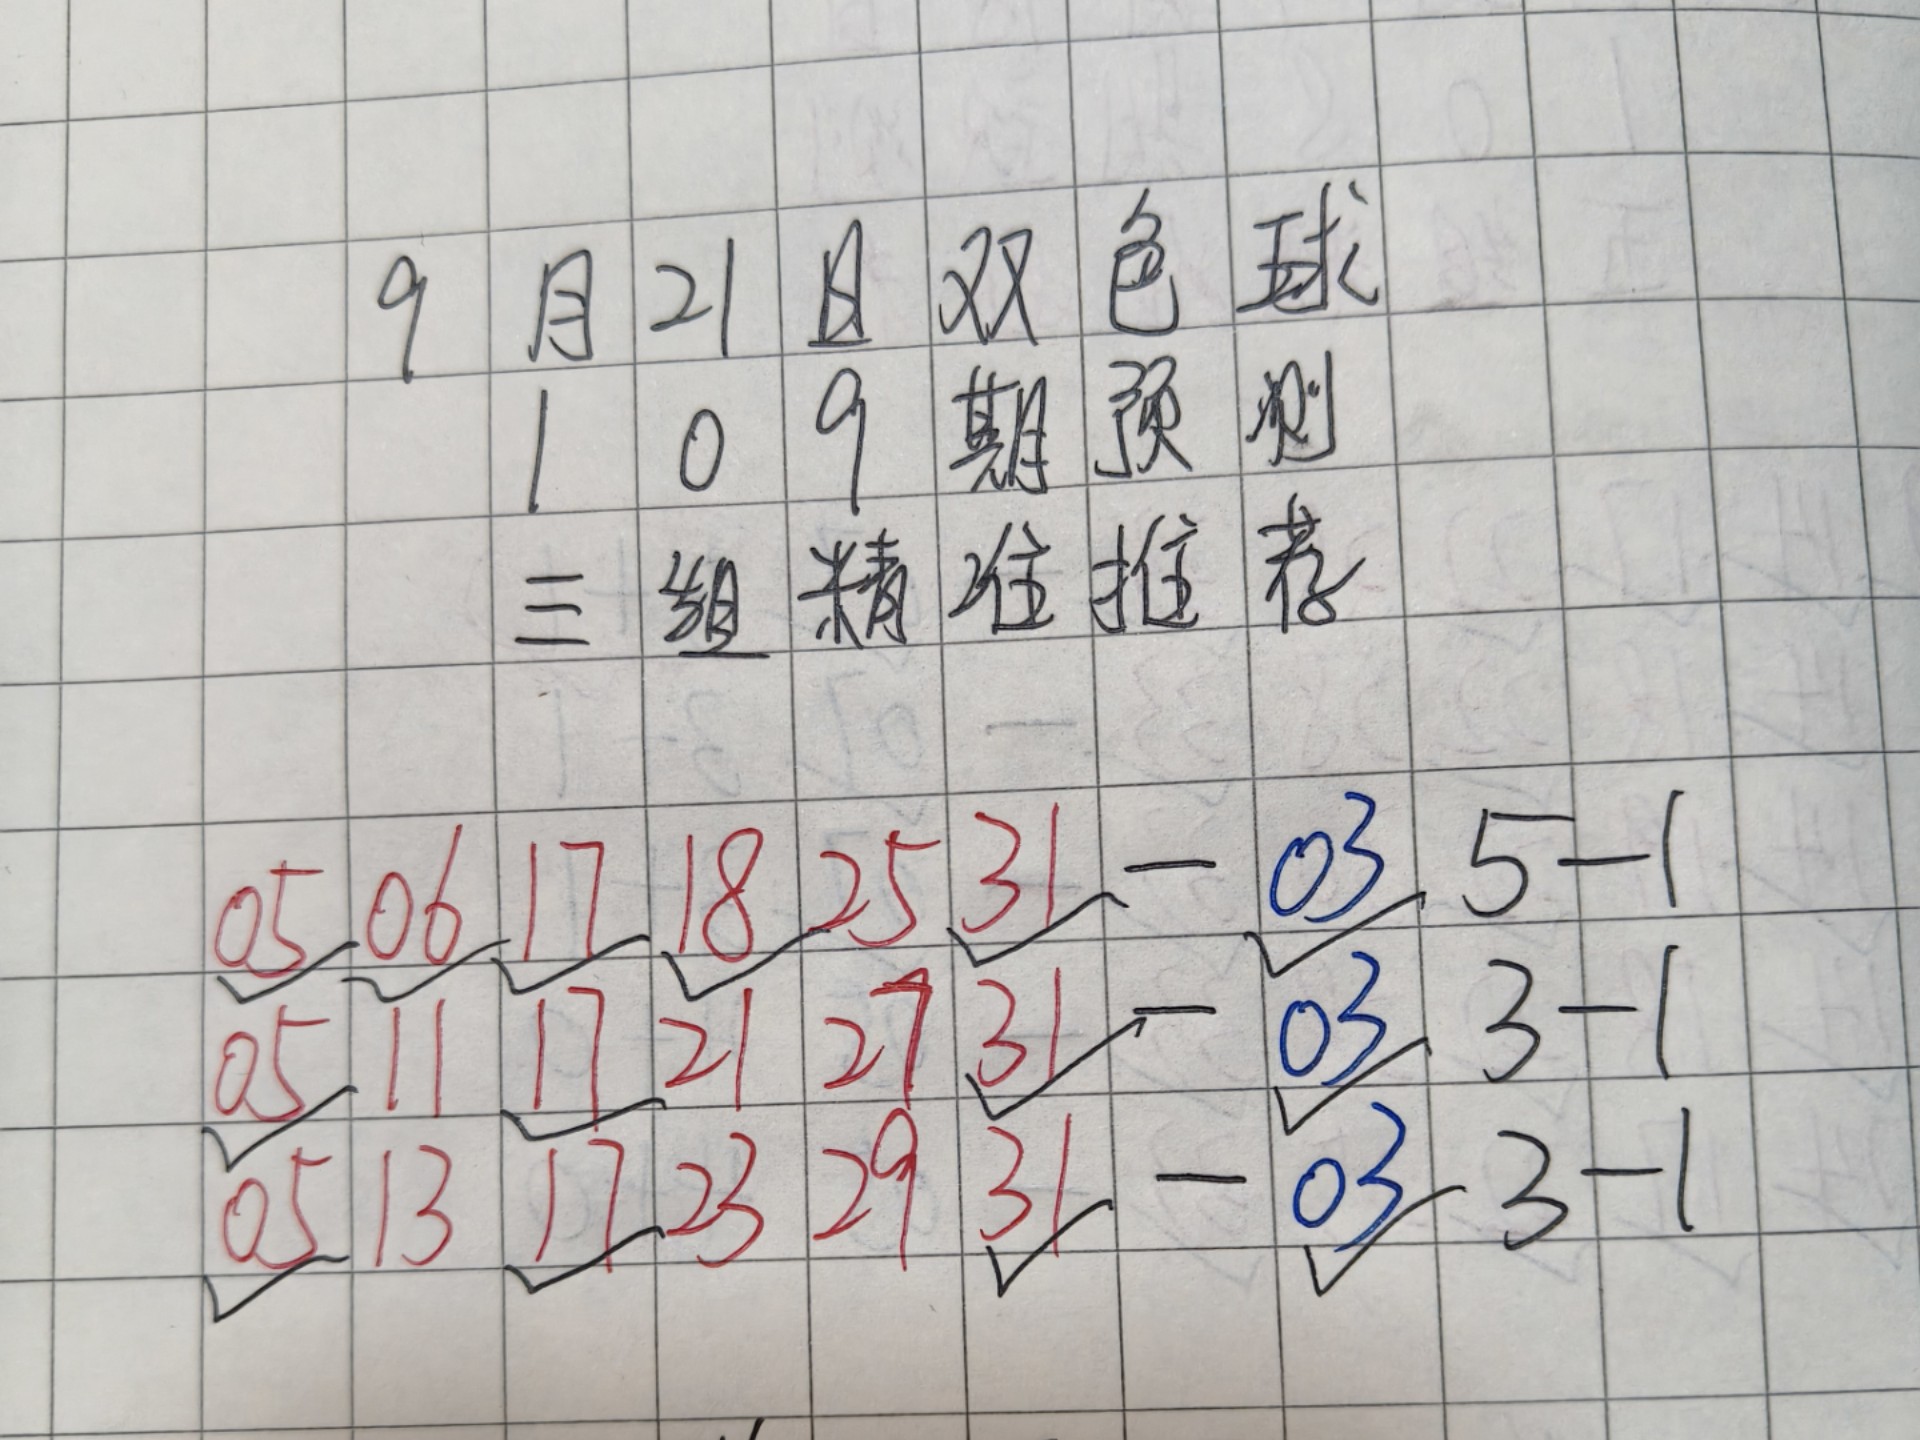 9月21日双色球
109期预测
三组精准推荐
05 06 17 18 25 31 — 03 5—1
05 11 17 21 27 31 — 03 3—1
05 13 17 23 29 31 — 03 3—1